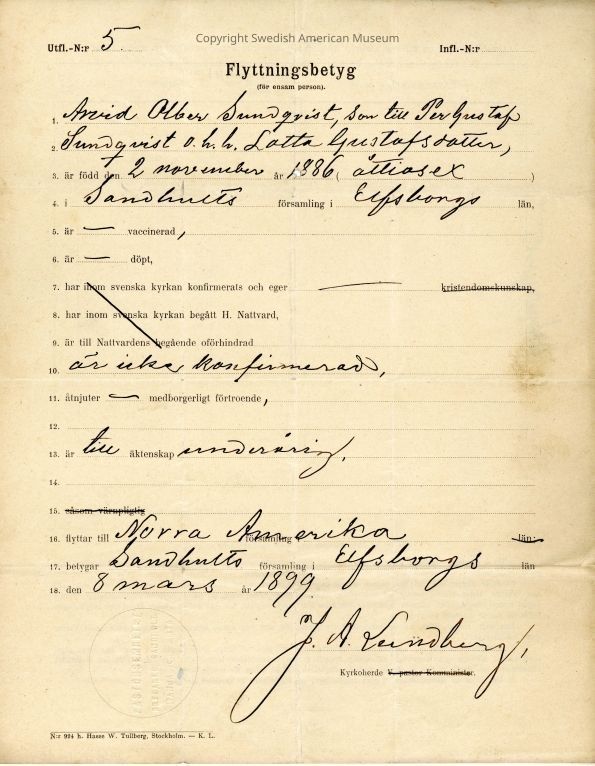 Copyright Swedish American Museum
Utfl.-N:r 5. Infl.-N:r
Flyttningsbetyg
(för ensam person).
1. Arvid Olber Sundqvist, Son till Per Gustaf
2. Sundqvist o. h. h. Lotta Gustafsdotter,
3. är född den 2 november år 1886 ( åttiosex )
4. i Sandhults församling i Elfsborgs län,
5. är — vaccinerad,
6. är — döpt,
7. har inom svenska kyrkan konfirmerats och eger — kristendomskunskap,
8. har inom svenska kyrkan begått H. Nattvard,
9. är till Nattvardens begående oförhindrad
10. är icke konfirmerad,
11. åtnjuter — medborgerligt förtroende,
12.
13. är till äktenskap underårig.
14.
15. såsom värnpligtig
16. flyttar till Norra Amerika församling län;
17. betygar Sandhults församling i Elfsborgs län
18. den 8 mars år 1899
J. A. Lundberg,
Kyrkoherde V. pastor Komminister.
N:r 994 h. Hasse W. Tullberg, Stockholm. — K. L.